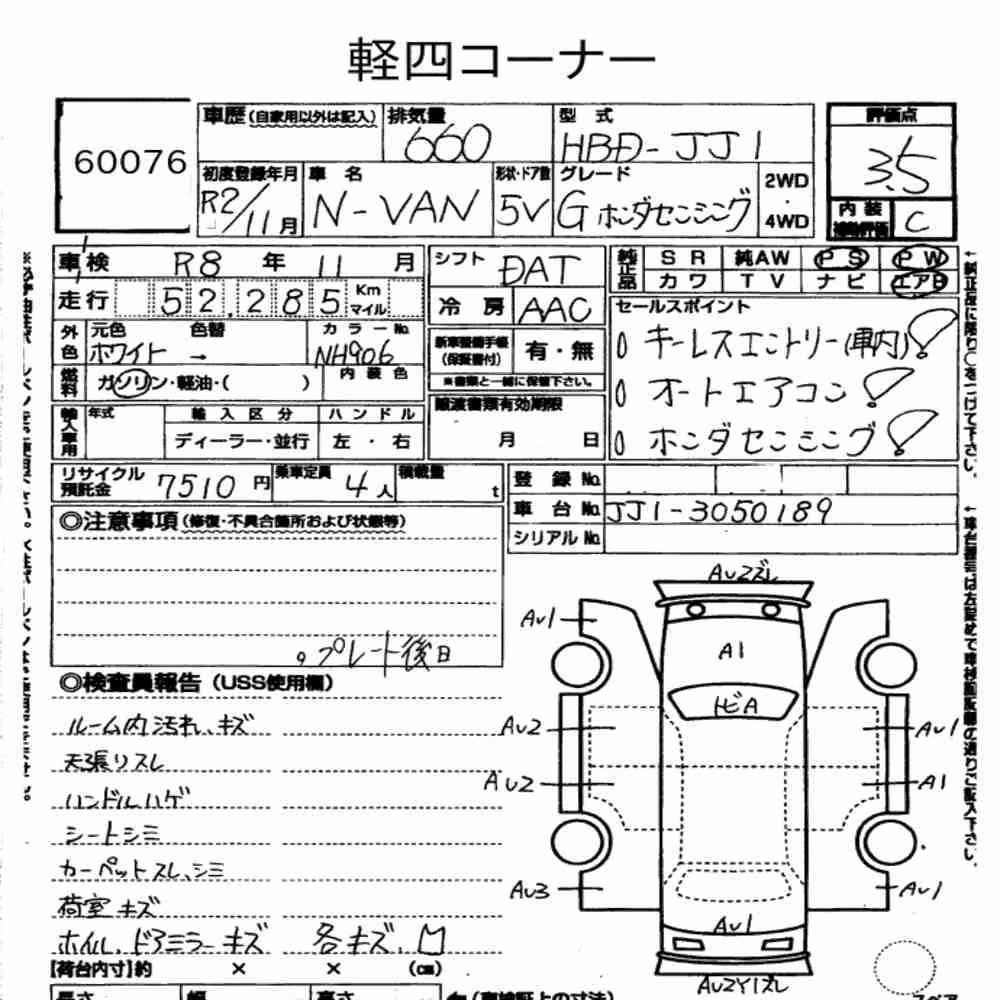 軽四コーナー
60076
車歴 (自家用以外は記入) 排気量 660 型式 HBD-JJ1 評価点 3.5
初度登録年月 R2/11月 車名 N-VAN 形状・ドア数 5V グレード G ホンダセンシング 2WD・4WD
内装 補助評価 C
車検 R8年 11月 シフト DAT 純正品 SR 純AW PS PW
カワ TV ナビ エアB
走行 52,285 Km マイル 冷房 AAC セールスポイント
外色 元色 ホワイト 色替 → カラーNo. NH906 新車整備手帳(保証書付) 有・無
キーレスエントリー(車内)!
※書類と一緒に保管下さい。
燃料 ガソリン・軽油・( ) 内装色
オートエアコン!
輸入車用 年式 輸入区分 ハンドル 譲渡書類有効期限
ディーラー・並行 左・右 月 日 ホンダセンシング!
リサイクル預託金 7510円 乗車定員 4人 積載量 t 登録No.
車台No. JJ1-3050189
シリアルNo.
◎注意事項 (修復・不具合箇所および状態等)
プレート後日
◎検査員報告 (USS使用欄)
ルーム内汚れ、キズ
天張りスレ
ハンドルハゲ
シートシミ
カーペットスレ、シミ
荷室キズ
ホイル、ドアミラーキズ 各キズ、凹
AU2ズレ
AU1
A1
トビA
AU2 AU1
AU2 A1
AU3 AU1
AU1
AU2Y1ズレ
【荷台内寸】約 × × (cm)
長さ 幅 高さ (車検証上の寸法)
スペア
↑純正品に限り○をつけて下さい。